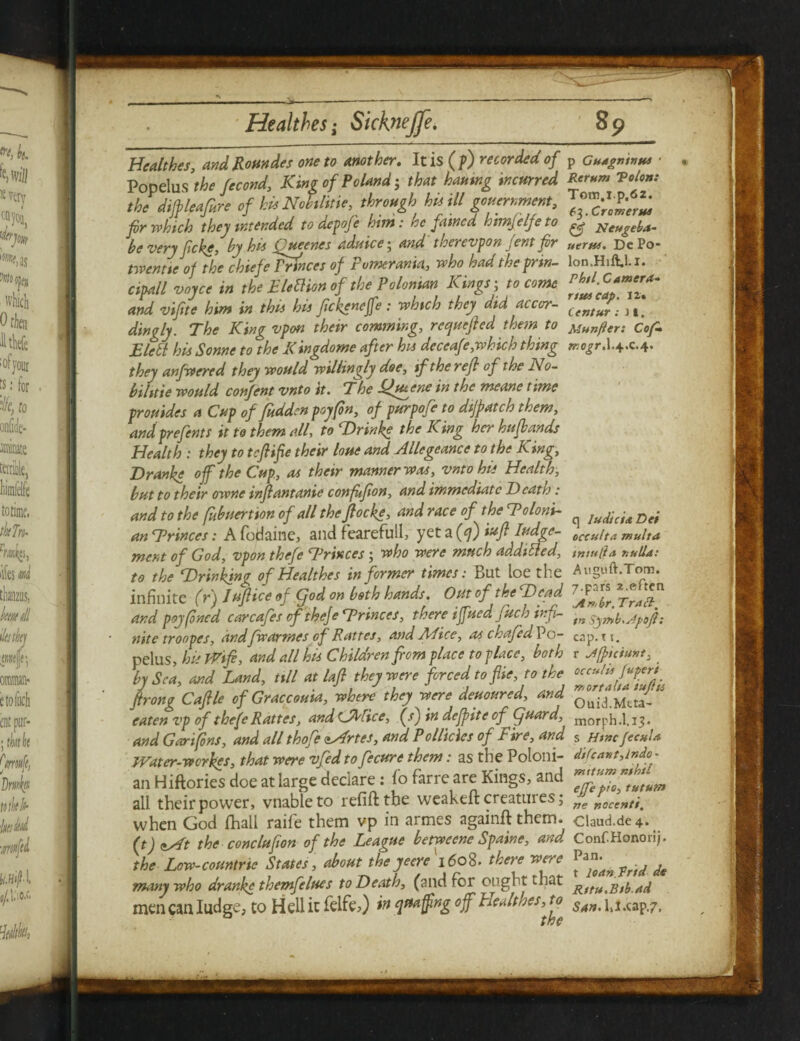 Healthes; Sicknesse. 89
Healthes, and Roundes one to another. It is (p) recorded of
Popelus the second, King of Poland; that hauing incurred
the displeasure of his Nobilitie, through his ill gouernment,
for which they intended to depose him: he fained himselfe to
be very sicke, by his Queenes aduice; and therevpon sent for
twentie of the chiefe Princes of Pomerania, who had the prin-
cipall voyce in the Election of the Polonian Kings; to come
and visite him in this his sickenesse: which they did accor-
dingly. The King vpon their comming, requested them to
Elect his Sonne to the Kingdome after his decease, which thing
they answered they would willingly doe, if the rest of the No-
bilitie would consent vnto it. The Queene in the meane time
prouides a Cup of sudden poyson, of purpose to dispatch them,
and presents it to them all, to Drinke the King her husbands
Health: they to testifie their loue and Allegeance to the King,
Dranke off the Cup, as their manner was, vnto his Health,
but to their owne instantanie confusion, and immediate Death:
and to the subuertion of all the stocke, and race of the Poloni-
an Princes: A sodaine, and fearefull, yet a (q) iust Iudge-
ment of God, vpon these Princes; who were much addicted,
to the Drinking of Healthes in former times: But loe the
infinite (r) Iustice of God on both hands. Out of the Dead
and poysoned carcases of these Princes, there issued such infi-
nite troopes, and swarmes of Rattes, and Mice, as chased Po-
pelus, his Wife, and all his Children from place to place, both
by Sea, and Land, till at last they were forced to flie, to the
strong Castle of Graccouia, where they were deuoured, and
eaten vp of these Rattes, and Mice, (s) in despite of Guard,
and Garisons, and all those Artes, and Pollicies of Fire, and
Water-workes, that were vsed to secure them: as the Poloni-
an Histories doe at large declare: so farre are Kings, and
all their power, vnable to resist the weakest creatures;
when God shall raise them vp in armes against them.
(t) At the conclusion of the League betweene Spaine, and
the Low-countrie States, about the yeere 1608. there were
many who dranke themselues to Death, (and for ought that
men can Iudge, to Hell it selfe,) in quaffing off Healthes, to
the
p Guagninus
Rerum Polon:
Tom.1.p.62.
63. Cromerus
& Neugeba-
uerus. De Po-
lon.Hist.l.1.
Phil. Camera-
rius cap. 12.
Centur: 1.
Munster: Cos-
mogr.l.4.c.4.
q Iudicia Dei
occulta multa
iniusta nulla:
August.Tom.
7.pars 2.
Ambr. Tract.
in Symb. Apost:
cap. 11.
r Aspiciunt,
occulis superi
mortalia iustis
Ouid.Meta-
morph.l.13.
s Hinc secula
discant, Indo-
mitum nihil
esse pio, tutum
ne nocenti.
Claud.de 4.
Conf.Honorij.
Pan.
t Ioan Frid de
Rstu.Bib.ad
San. l,1.cap.7,